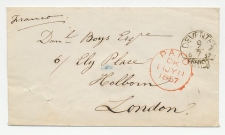 Franco
Danl. Boys Esqre
6/ Ely Place
Holborn
London.
PAID
1867